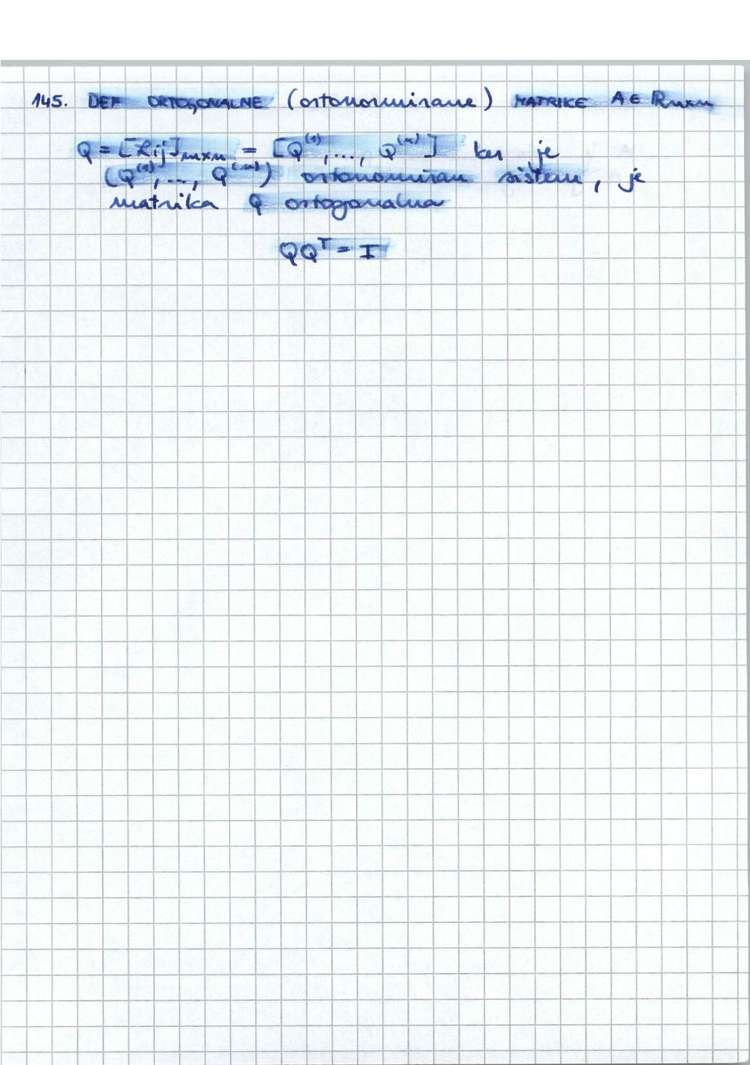 145. DEF ORTOGONALNE (ortonormirane) MATRIKE A ∈ Rnxn
Q = [αij]nxn = [Q⁽¹⁾, ..., Q⁽ⁿ⁾] ker je
(Q⁽¹⁾, ..., Q⁽ⁿ⁾) ortonormiran sistem, je
matrika Q ortogonalna
QQᵀ = I